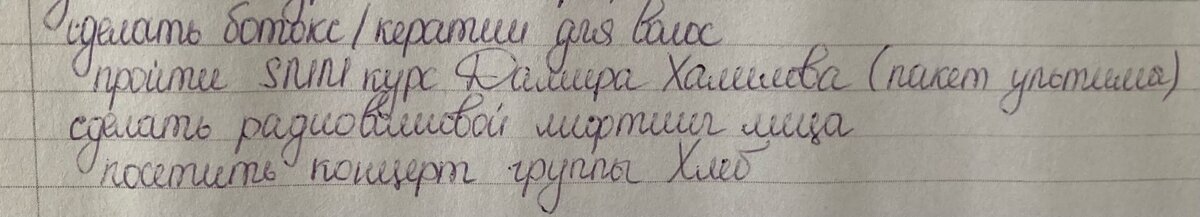 сделать ботокс/кератин для волос
пройти SMM курс Дамира Халилова (пакет ультима)
сделать радиоволновой лифтинг лица
посетить концерт группы Хлеб